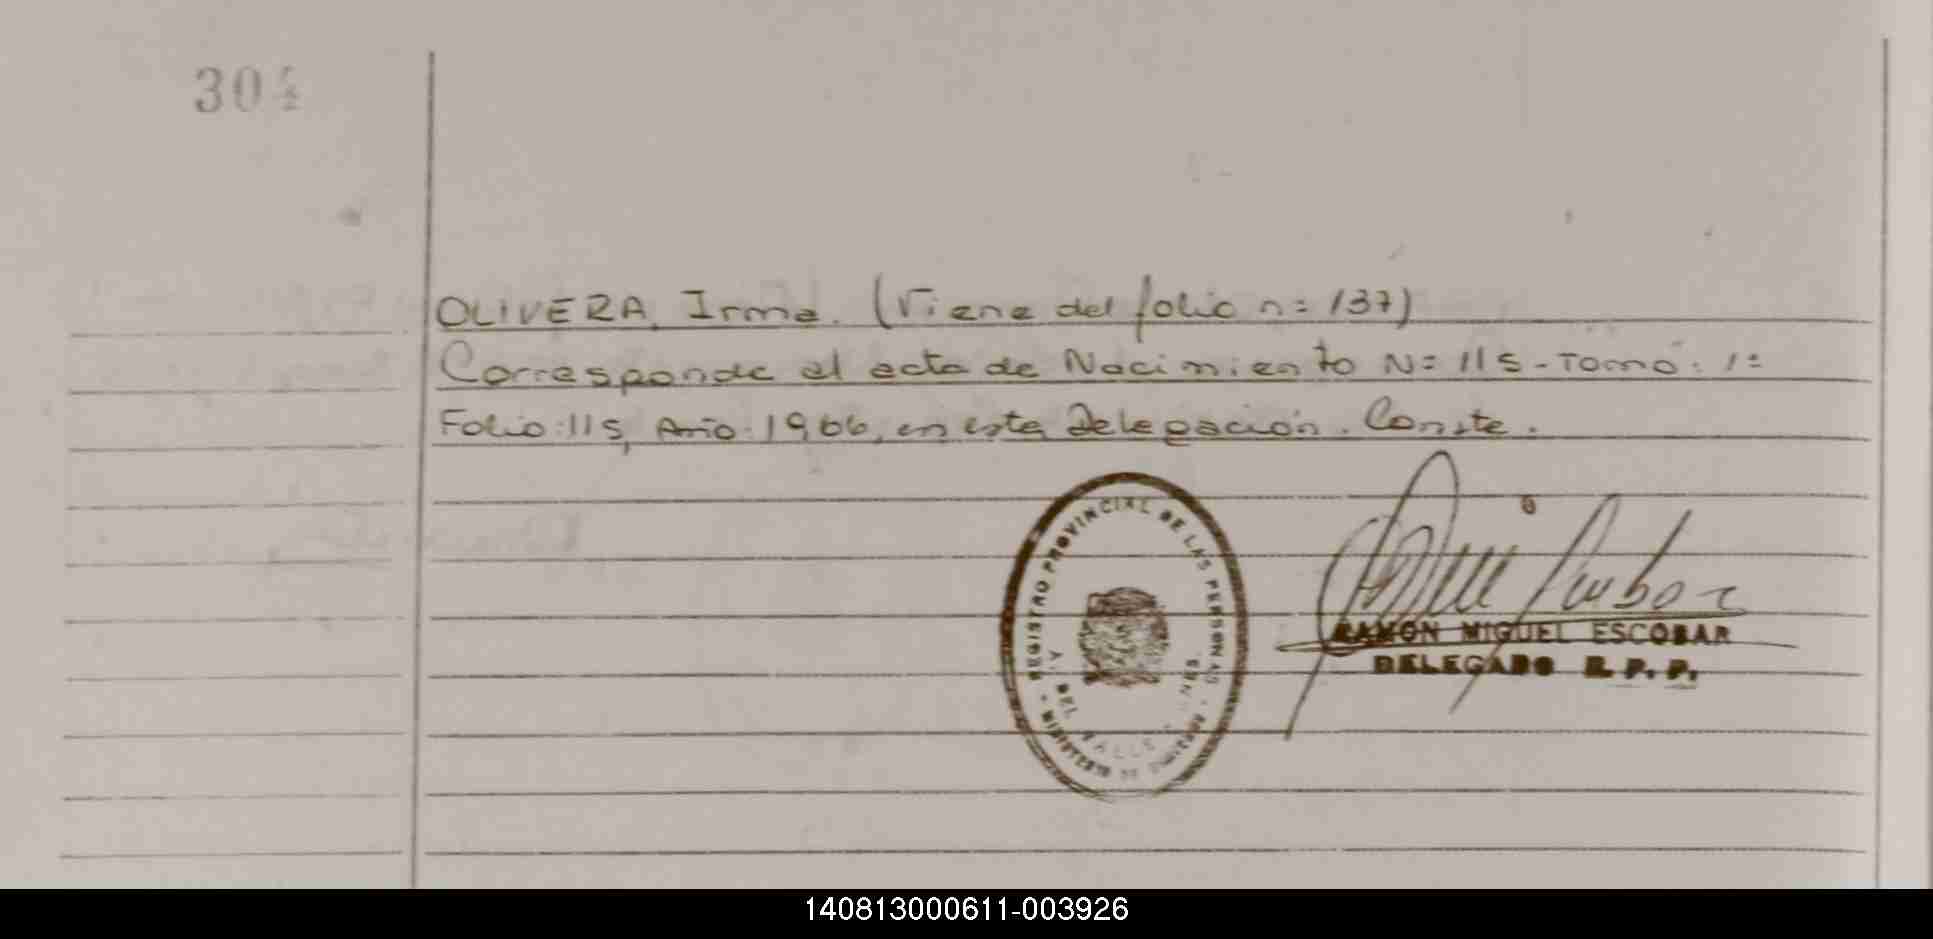 30
OLIVERA, Irma. (Viene del folio n= 137)
Corresponde al acta de Nacimiento N= 115 - Tomo: 1=
Folio: 115, Año: 1966, en esta Delegación. Conste.
REGISTRO PROVINCIAL DE LAS PERSONAS
DEL VALLE
RAMON MIGUEL ESCOBAR
DELEGADO R. P. P.
140813000611-003926